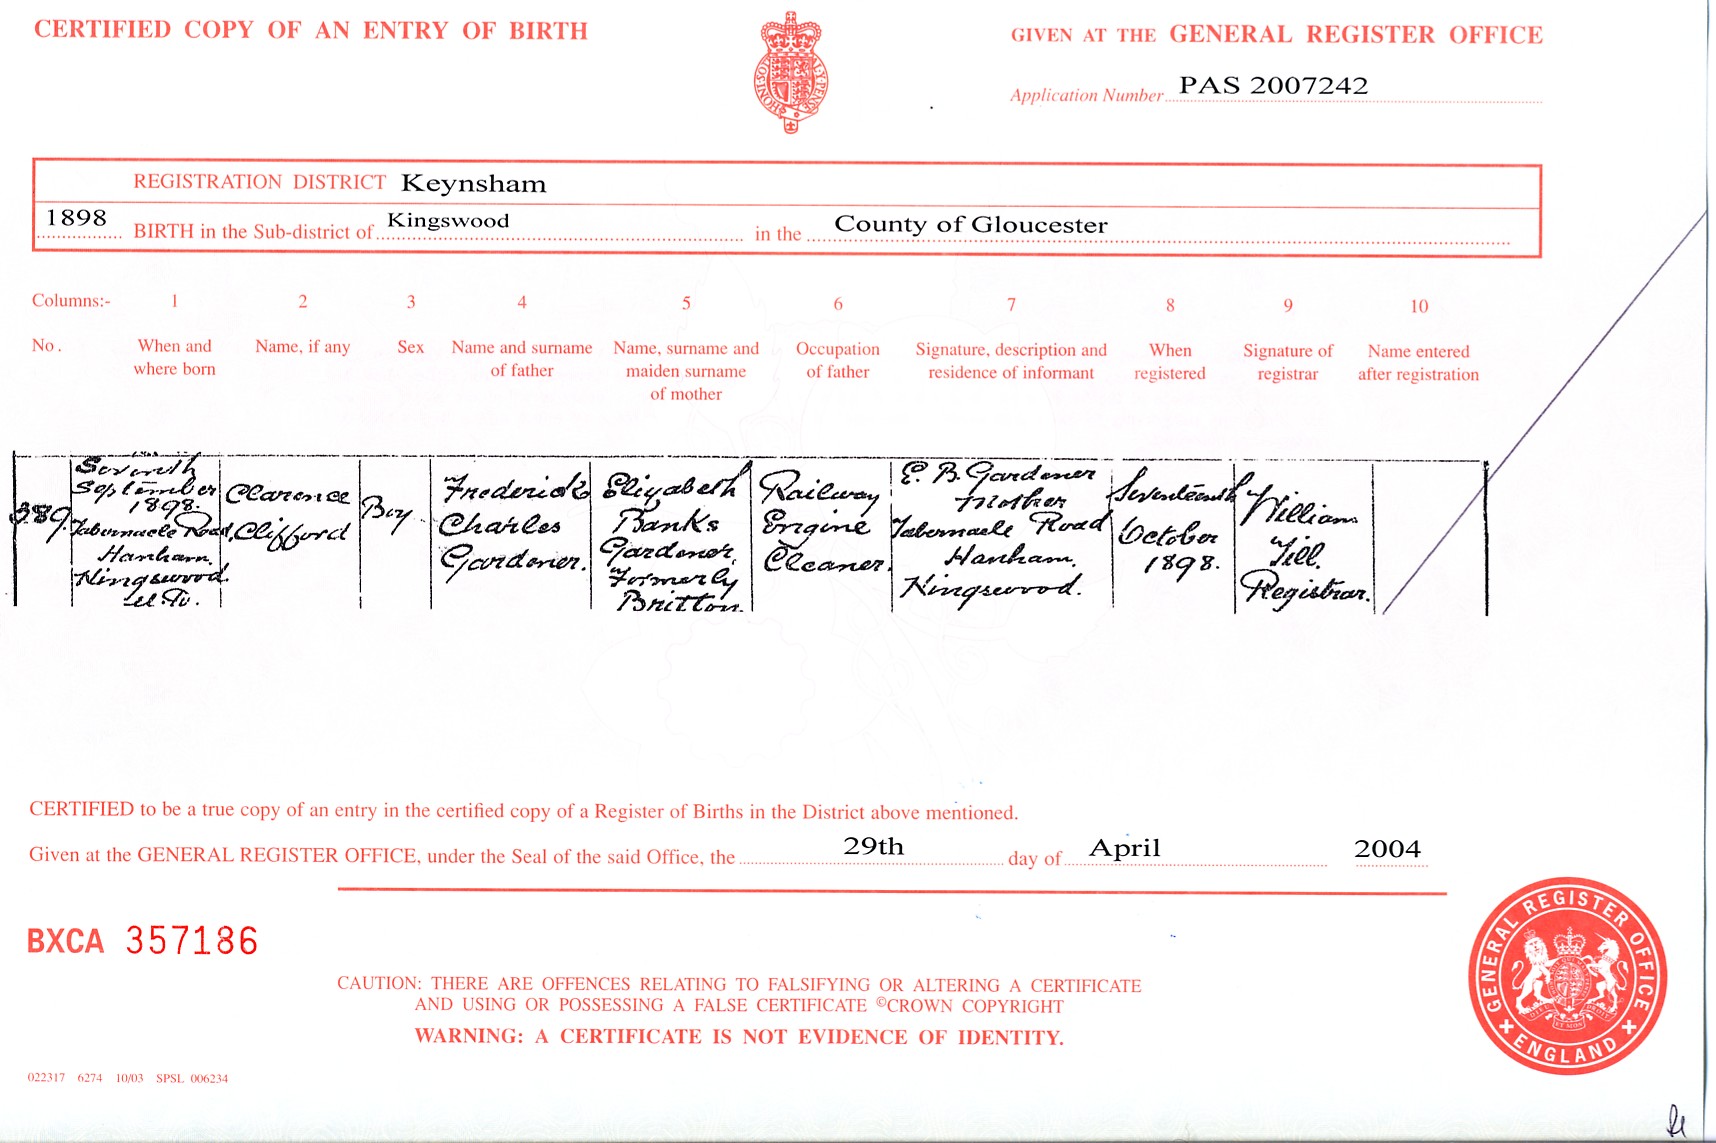 CERTIFIED COPY OF AN ENTRY OF BIRTH
GIVEN AT THE GENERAL REGISTER OFFICE
Application Number PAS 2007242
REGISTRATION DISTRICT Keynsham
1898 BIRTH in the Sub-district of Kingswood in the County of Gloucester
Columns:- 1 2 3 4 5 6 7 8 9 10
No. When and where born
Name, if any
Sex
Name and surname of father
Name, surname and maiden surname of mother
Occupation of father
Signature, description and residence of informant
When registered
Signature of registrar
Name entered after registration
389.
Seventh
September
1898.
Tabernacle Road,
Hanham.
Kingswood.
Clarence
Clifford
Boy
Frederick
Charles
Gardener.
Elizabeth
Banks
Gardener,
Formerly
Britton.
Railway
Engine
Cleaner.
E. B. Gardener
Mother
Tabernacle Road
Hanham.
Kingswood.
Seventeenth
October
1898.
William
Till.
Registrar.
CERTIFIED to be a true copy of an entry in the certified copy of a Register of Births in the District above mentioned.
Given at the GENERAL REGISTER OFFICE, under the Seal of the said Office, the 29th day of April 2004
BXCA 357186
CAUTION: THERE ARE OFFENCES RELATING TO FALSIFYING OR ALTERING A CERTIFICATE
AND USING OR POSSESSING A FALSE CERTIFICATE ©CROWN COPYRIGHT
WARNING: A CERTIFICATE IS NOT EVIDENCE OF IDENTITY.
GENERAL REGISTER OFFICE
ENGLAND
022317 6274 10/03 SPSL 006234